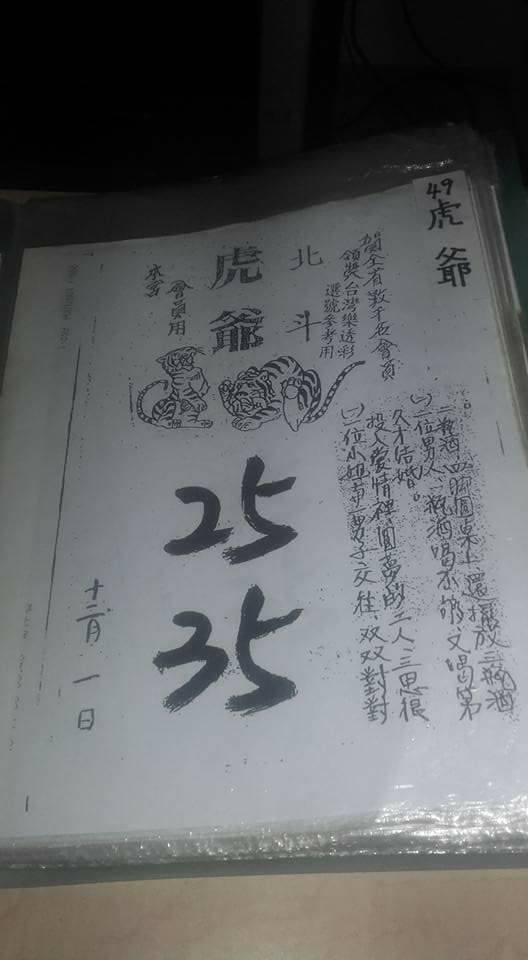 49虎爺
賀全省數千名會員
領獎台灣樂透彩
選號參考用
北斗
虎爺
會員用
本宮
(一)一位小姐一男子交往、双双對對
投入愛情裡圓夢的二人三思很
久才結婚。
(二)一位男人、一瓶酒喝不夠又喝第
二瓶酒四脚圓桌上還擺放三瓶酒
25
35
十二月一日